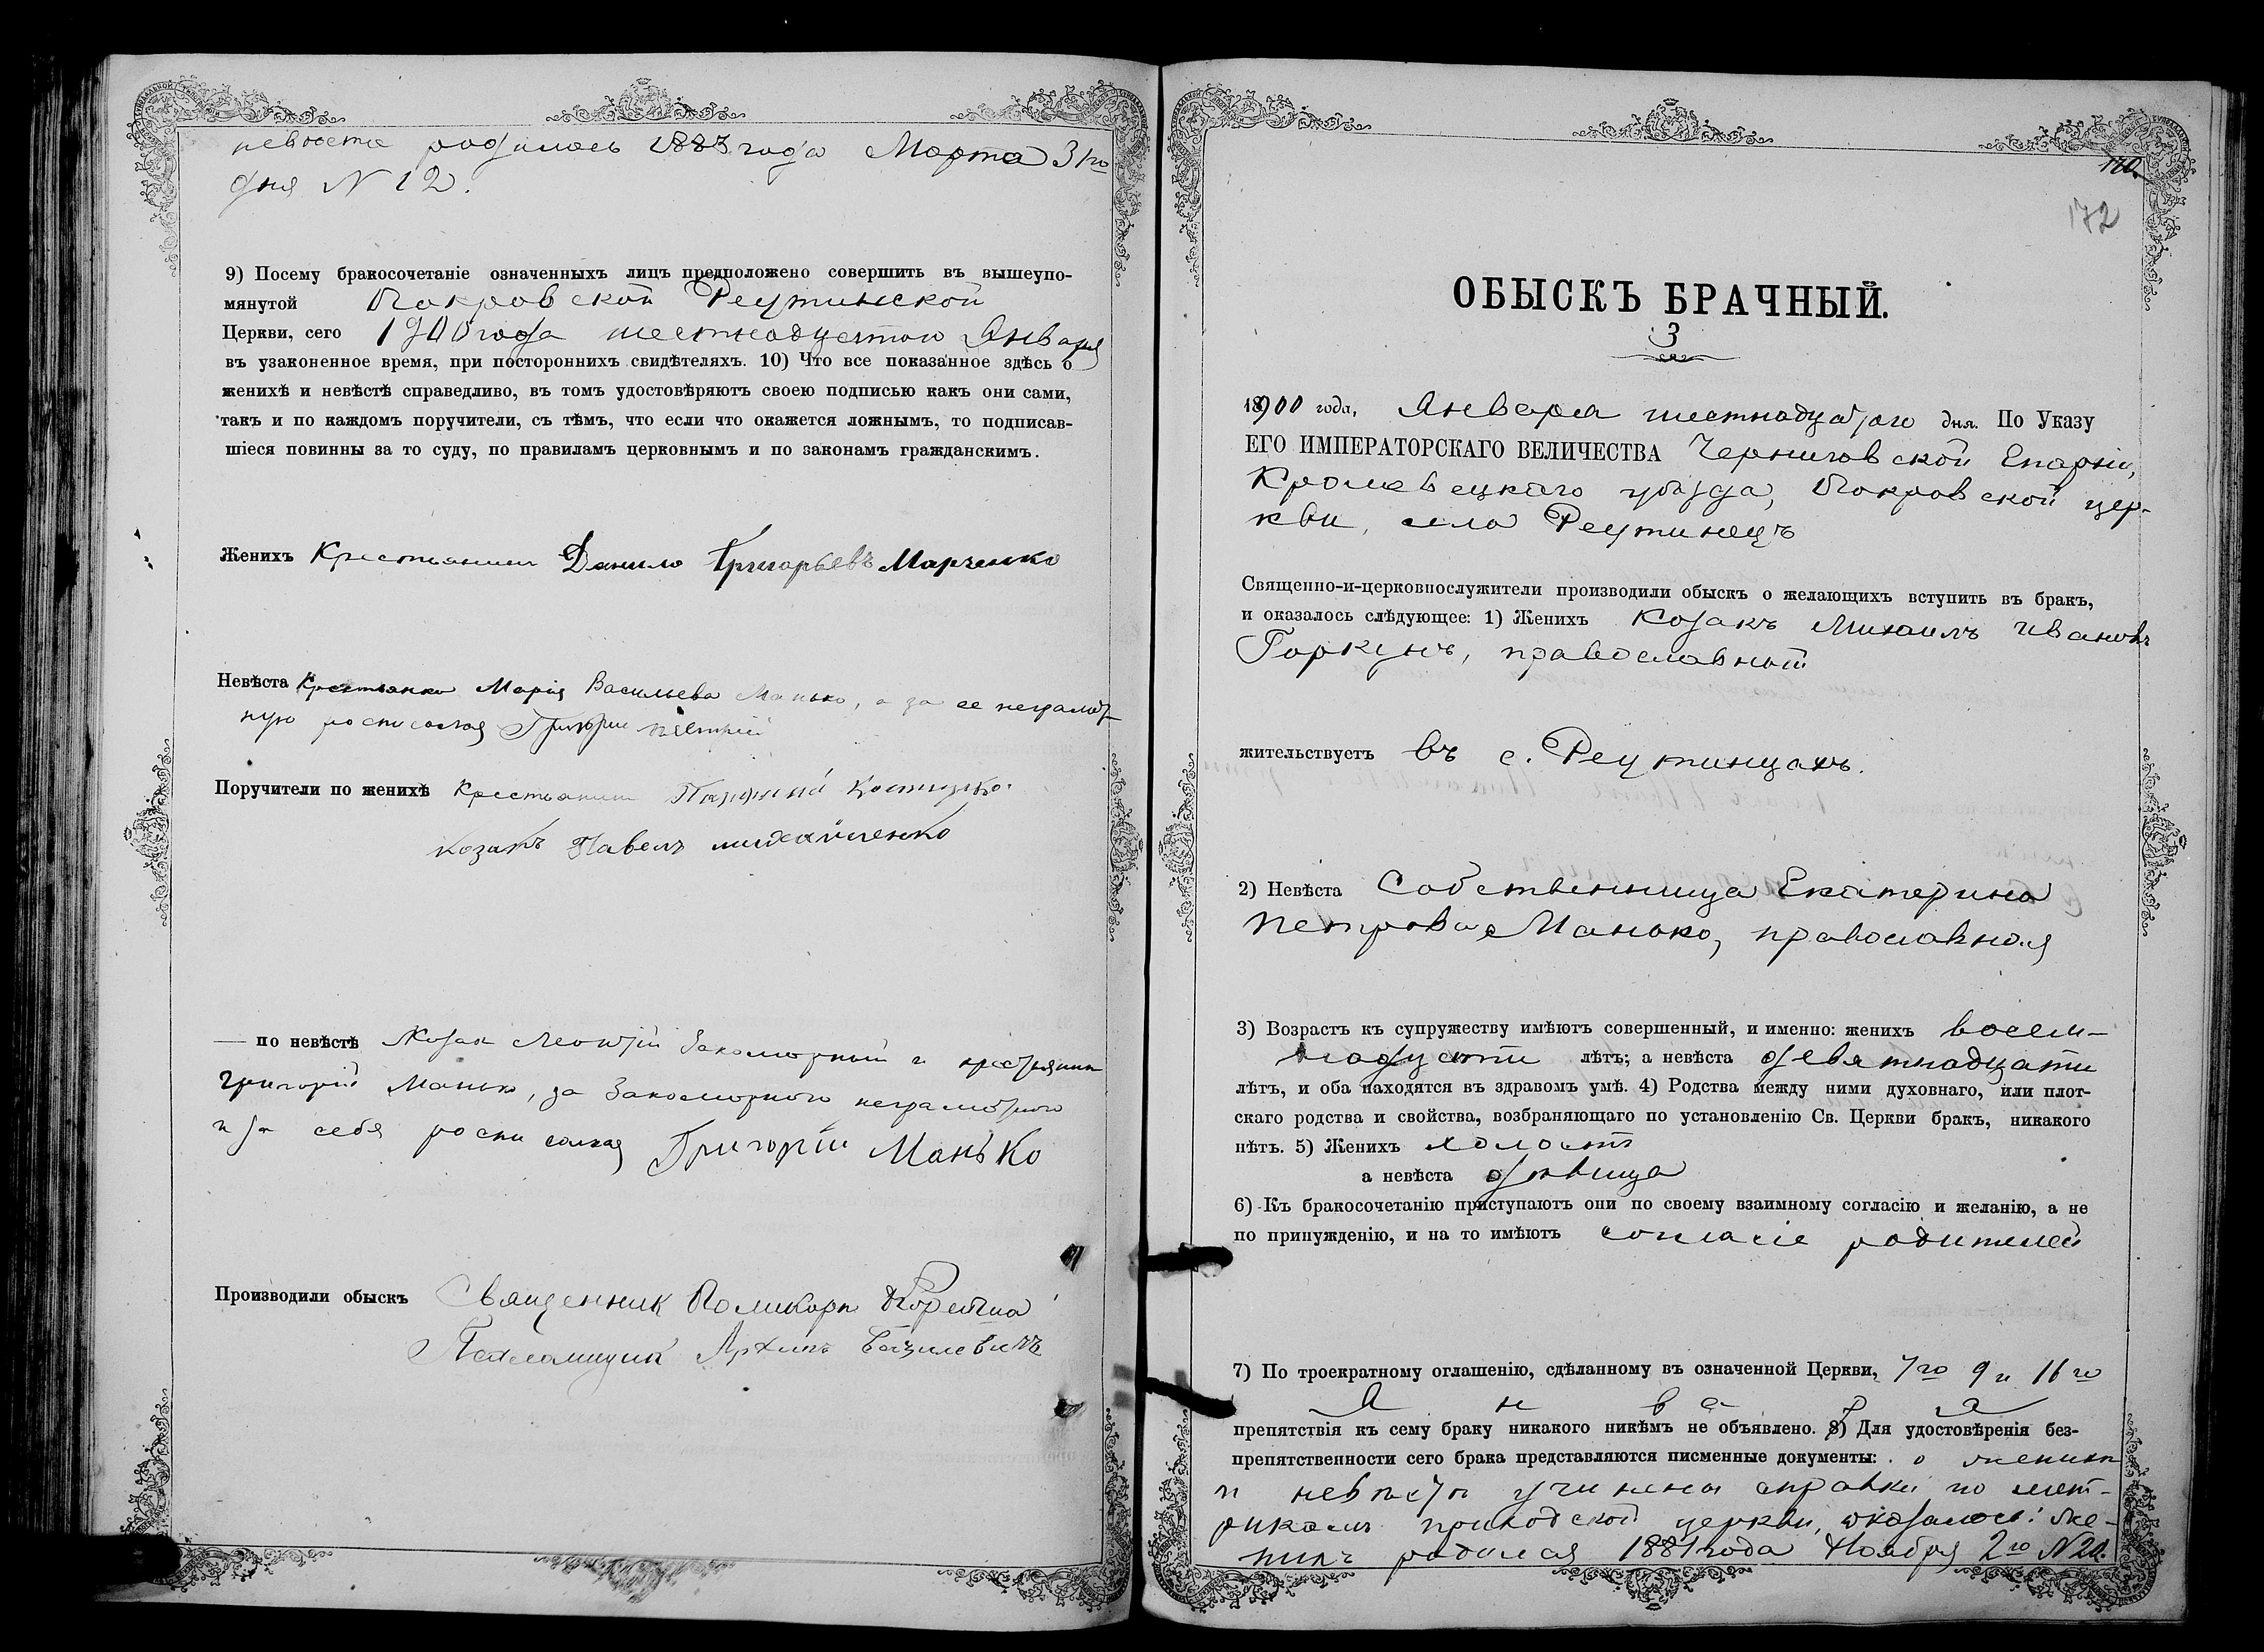 невѣста родилась 1883 года Марта 31го
дня N 12.
9) Посему бракосочетаніе означенныхъ лицъ предположено совершить въ вышеупо-
мянутой Покровской Реутинской
Церкви, сего 1900 года шестнадцатаго Января
въ узаконенное время, при постороннихъ свидѣтеляхъ. 10) Что все показанное здѣсь о
женихѣ и невѣстѣ справедливо, въ томъ удостовѣряютъ своею подписью какъ они сами,
такъ и по каждомъ поручители, съ тѣмъ, что если что окажется ложнымъ, то подписав-
шіеся повинны за то суду, по правиламъ церковнымъ и по законамъ гражданскимъ.
Женихъ Крестьянинъ Данило Григорьевъ Марченко
Невѣста Крестьянка Марія Васильева Манько, а за ее неграмот-
ную росписался Григорій
Поручители по женихѣ Крестьянин Костюцко
козакъ Павелъ михайленко
— по невѣстѣ Козак Леонтій Закоморный и крестьянин
Григорій Манько, за Закоморного неграмотного
и за себя росписался Григорій Манько
Производили обыскъ Священник Поликарп
Псаломщик Архипъ Базилевичъ
170.
172
ОБЫСКЪ БРАЧНЫЙ.
3
1900 года, Января шестнадцатаго дня. По Указу
ЕГО ИМПЕРАТОРСКАГО ВЕЛИЧЕСТВА Черниговской Епархіи,
Кролевецкаго уѣзда, Покровской цер-
кви, села Реутинецъ
Священно-и-церковнослужители производили обыскъ о желающихъ вступить въ бракъ,
и оказалось слѣдующее: 1) Женихъ Козакъ Михаилъ Ивановъ
Горкунъ, православный
жительствуетъ въ с. Реутинцахъ.
2) Невѣста Собственница Екатерина
Петрова Манько, православная
3) Возрастъ къ супружеству имѣютъ совершенный, и именно: женихъ восем-
надцати лѣтъ; а невѣста девятнадцати
лѣтъ, и оба находятся въ здравомъ умѣ. 4) Родства между ними духовнаго, или плот-
скаго родства и свойства, возбраняющаго по установленію Св. Церкви бракъ, никакого
нѣтъ. 5) Женихъ холостъ
а невѣста дѣвица
6) Къ бракосочетанію приступаютъ они по своему взаимному согласію и желанію, а не
по принужденію, и на то имѣютъ согласіе родителей
7) По троекратному оглашенію, сдѣланному въ означенной Церкви, 7го 9 и 16го
Января
препятствія къ сему браку никакого никѣмъ не объявлено. 8) Для удостовѣренія без-
препятственности сего брака представляются писменные документы: о женихѣ
и невѣстѣ учинены справки по мет-
рикамъ приходской церкви, оказалось: же-
нихъ родился 1881 года Ноября 2го N 20.